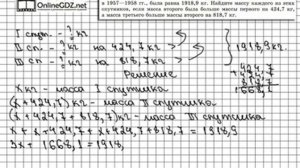 OnlineGDZ.net
в 1957—1958 гг., была равна 1918,9 кг. Найдите массу каждого из этих
спутников, если масса второго была больше массы первого на 424,7 кг,
а масса третьего больше массы второго на 818,7 кг.
I спут. - ? кг
II сп. - ? кг на 424,7 кг > 1918,9 кг.
III сп. - ? кг на 818,7 кг >
Решение
+ 424,7
424,7
818,7
1668,1
x кг - масса I спутника
(x + 424,7) кг - масса II спутника
(x + 424,7 + 818,7) кг - масса III спутника
x + x + 424,7 + x + 424,7 + 818,7 = 1918,9
3x + 1668,1 = 1918,